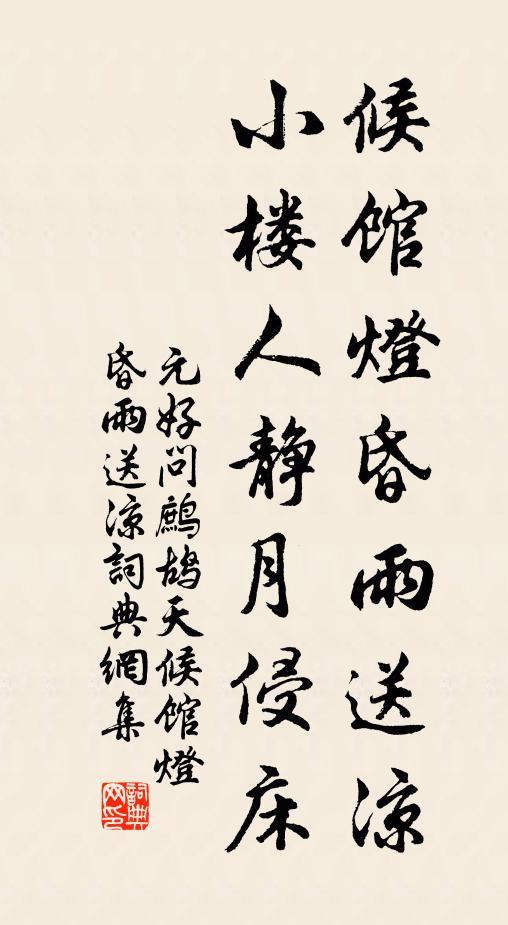 候馆燈昏雨送凉
小楼人静月侵床
元好问鹧鸪天候馆燈
昏雨送凉詞典網集
詞典
网印